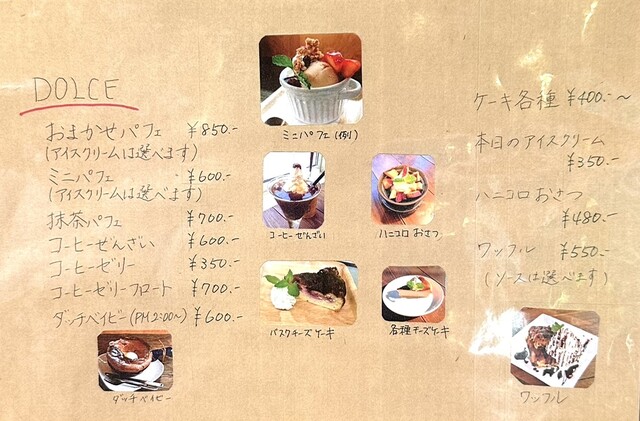 DOLCE
おまかせパフェ ¥850.-
(アイスクリームは選べます)
ミニパフェ ¥600.-
(アイスクリームは選べます)
抹茶パフェ ¥700.-
コーヒーぜんざい ¥600.-
コーヒーゼリー ¥350.-
コーヒーゼリーフロート ¥700.-
ダッチベイビー(PM2:00〜) ¥600.-
ダッチベイビー
ミニパフェ(例)
コーヒーぜんざい
ハニコロおさつ
バスクチーズケーキ
各種チーズケーキ
ケーキ各種 ¥400.-〜
本日のアイスクリーム
¥350.-
ハニコロおさつ
¥480.-
ワッフル ¥550.-
(ソースは選べます)
ワッフル